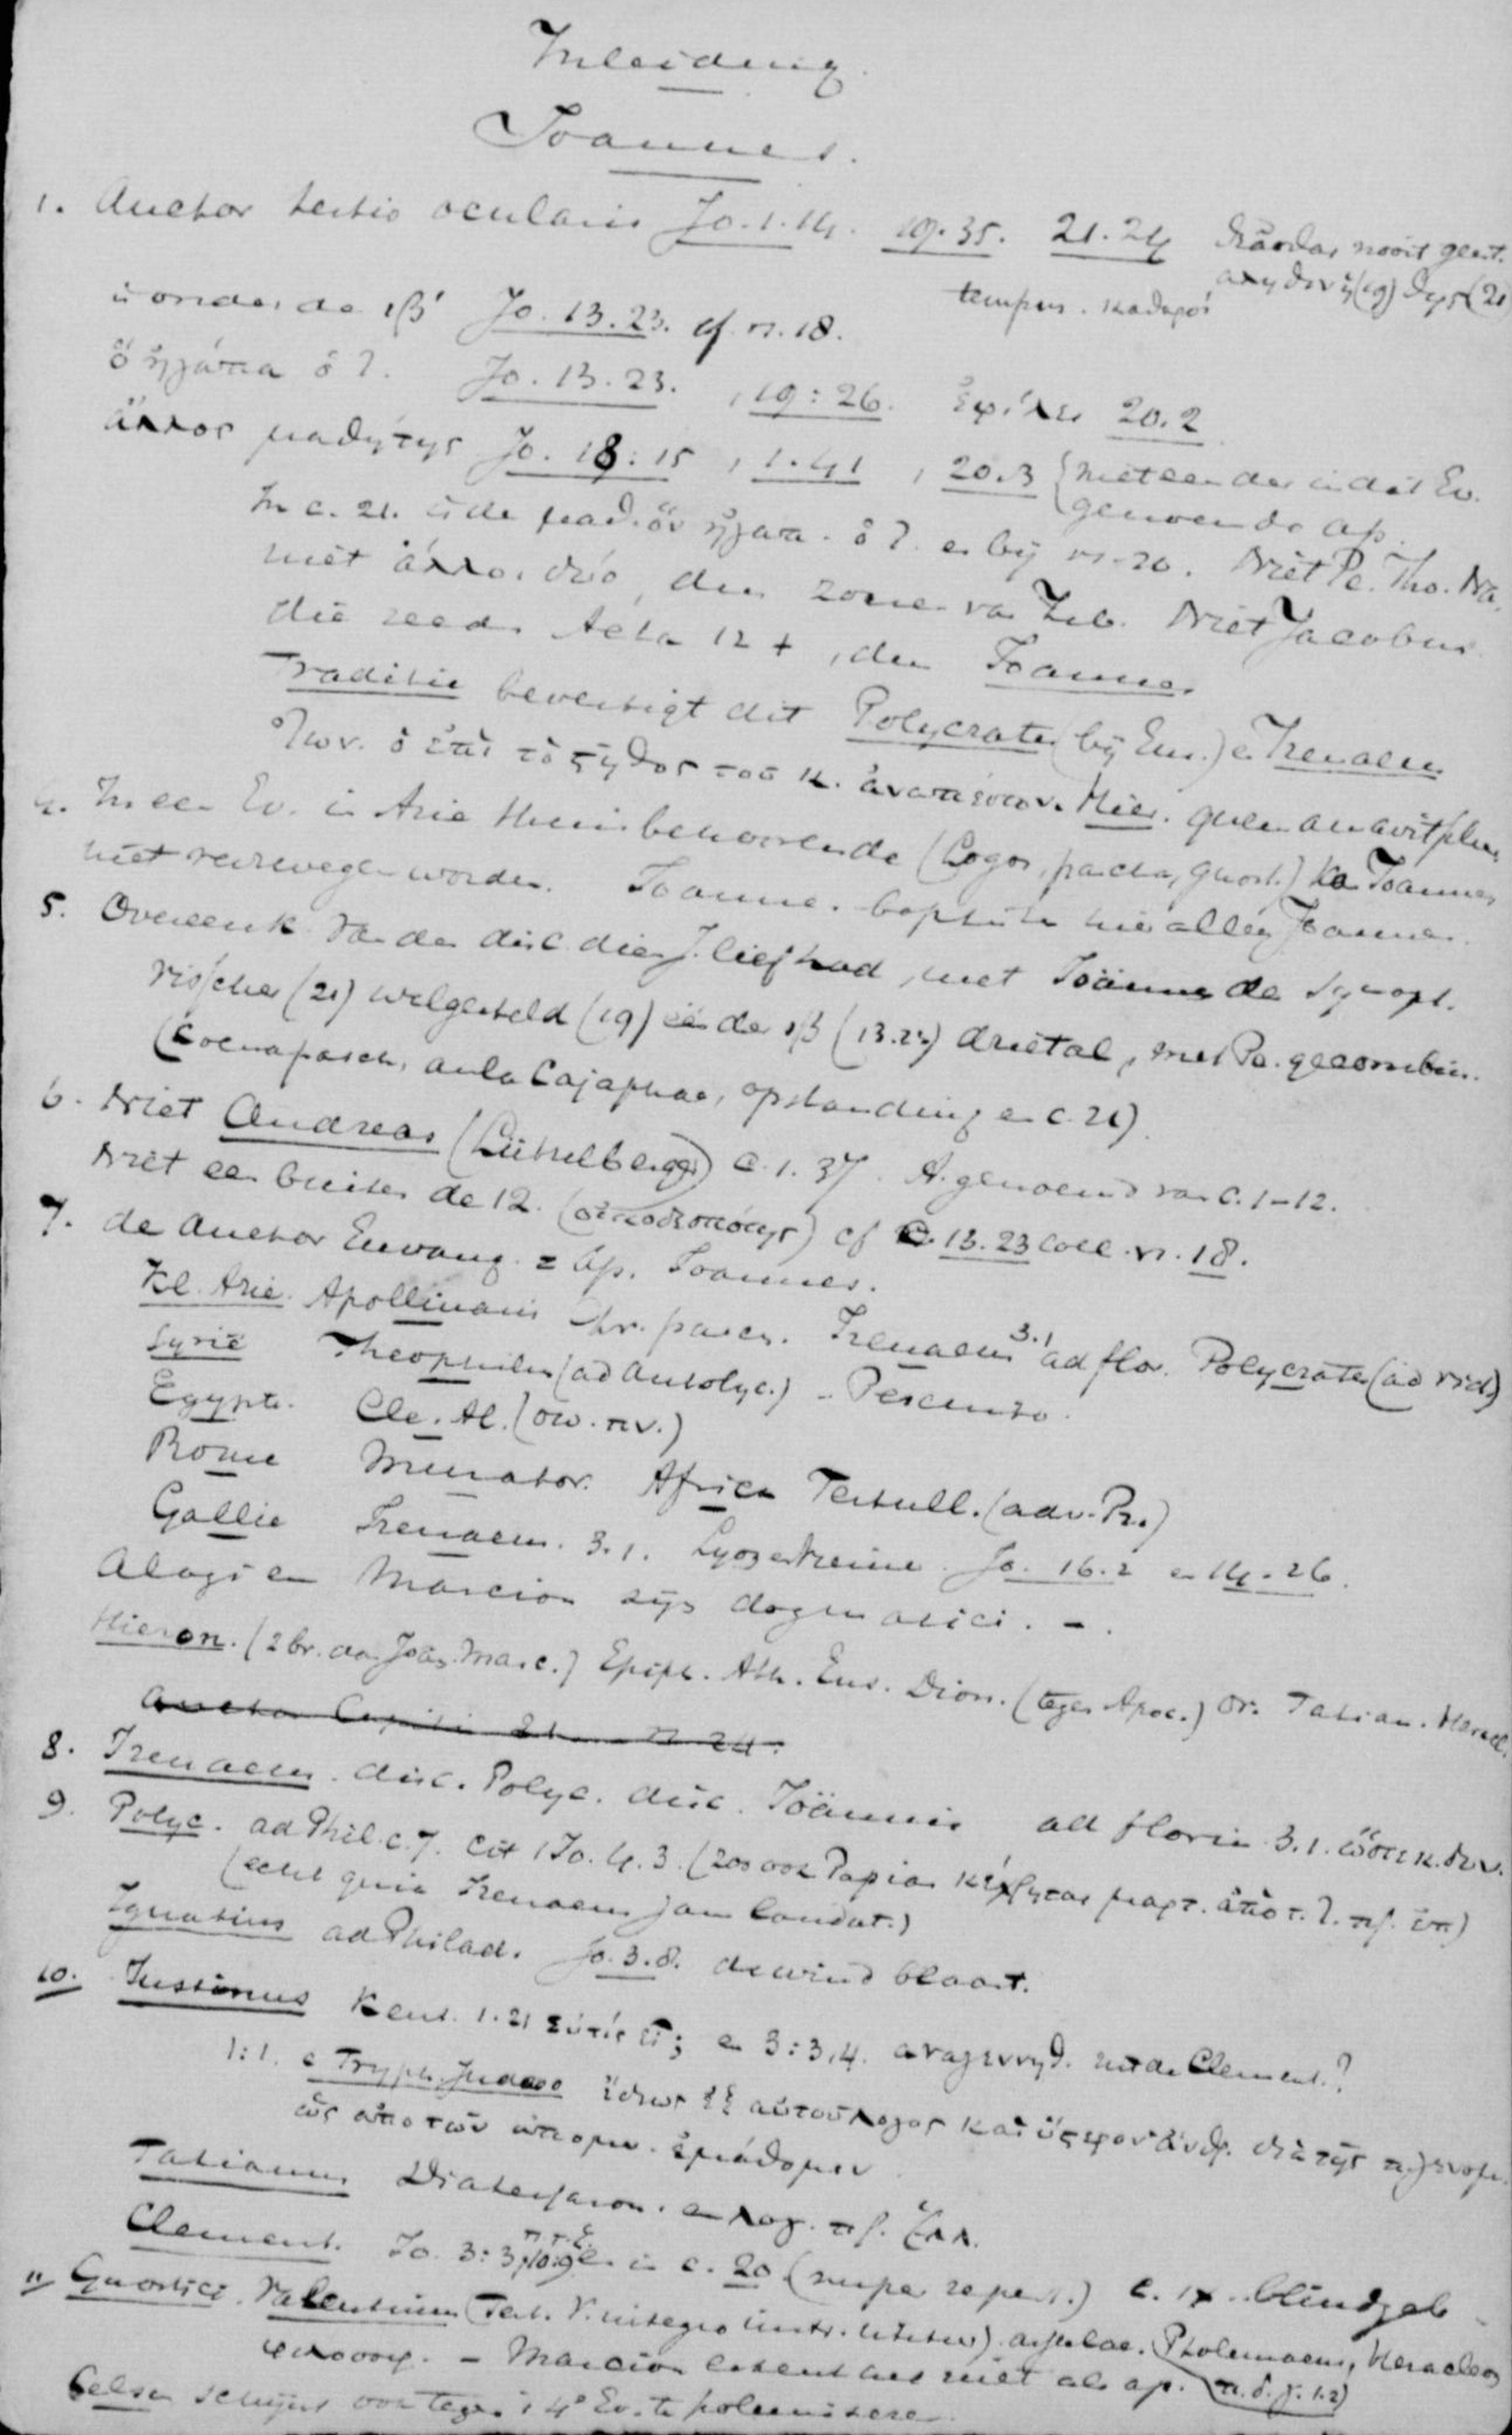 Inleiding.
Joannes.
1. Auctor testis ocularis Jo. 1. 14. 19. 35. 21. 24
tempus. καθαροι
is onder de ιβ' Jo. 13. 23. cf. vs. 18.
ὃν ἠγάπα ὁ Ἰ. Jo. 13. 23. , 19: 26. ἐφίλει 20. 2
ἄλλος μαθητης Jo. 18: 15 , 1. 41 , 20. 3 {niet een der in dit Ev.
genoemde ap.
In c. 21. is de μαθ. ὃν ἠγαπ. ὁ Ἰ. er bij vs. 20. Niet Pe. Tho. Na.
niet ἄλλοι δύο, den zonen van Zeb. Niet Jacobus
die reeds Acta 12 +, dus Joannes
Traditie bevestigt dit Polycrates (bij Eus.) en Irenaeus
Ἰων. ὁ ἐπὶ τὸ στῆθος τοῦ κ. ἀναπεσων. Hier. quem amavit plur.
4. In een Ev. in Azie thuisbehoorende (Logos, pascha, gnost.) kan Joannes
niet verzwegen worden. Joannes baptista hier alleen Joannes.
5. Overeenk. van den disc. dien J. liefhad, met Joannes de synopt.
visscher (21) welgesteld (19) één der ιβ (13. 23) drietal, met Pe. gecombin.
(Coenapasch, aula Cajaphae, opstanding en c. 21).
6. Niet Andreas (Lützelberger) c. 1. 37. A. genoemd van c. 1-12.
Niet een buiten de 12. (οἰκοδεσπότης) cf c. 13. 23 coll. vs. 18.
7. de Auctor Euvang. = Ap. Joannes.
Kl. Azie. Apollinaris chr. pasch. Irenaeus 3.1 ad flor. Polycrates (ad vict.)
Syrië Theophilus (ad Autolyc.) - Peschito.
Egypte. Cle. Al. (σω. πν.)
Rome Murator. Africa Tertull. (adv. Pr.)
Gallie Irenaeus. 3. 1. Lyon en Vienne. Jo. 16. 2 en 14. 26.
Alogi en Marcion zijn dogmatici. -.
Hieron. (2 br. dan Joan. Marc.) Epiph. Ath. Eus. Dion. (tegen Apoc.) Or. Tatian. Heracl.
Auctor Capitis 21 vs 24.
8. Irenaeus. disc. Polyc. disc. Joännis ad florin. 3. 1. ὥστε κ. δυν.
9. Polyc. ad Phil. c. 7. cit 1 Jo. 4. 3. (zoo ook Papias κέχρηται μαρτ. ἀπὸ τ. Ἰ. πρ. ἐπ)
(echt quia Irenaeus jam laudat.)
Ignatius ad Philad. Jo. 3. 8. de wind blaast.
10. Justinus Kent. 1. 21 συτίς εἶ; en 3: 3, 4. αναγεννηθ. uit de Clement.?
1: 1. c Tryph. Judaeo ἰδίως ἐξ αὐτοῦ λογος καὶ ὕστερον ἄνθρ. διὰ τῆς π. γενομ.
ὡς ἀπο τῶν ἀπομν. ἐμάθομεν
Tatianus Diatessaron. en λογ. πρ. Ἑλλ.
Clement. Jo. 3: 3, 10: 9 en in c. 20 (nuper repert.) c. ix. blindgeb
11 Gnostici. Valentinus (Tert. V. integro instr. utitur). asseclae. Ptolemaeus, Heracleon
φιλοσοφ. - Marcion erkent het niet als ap. π. δ. γ. 1. 2)
Celsus schijnt ook tegen 't 4e Ev. te polemiseren.